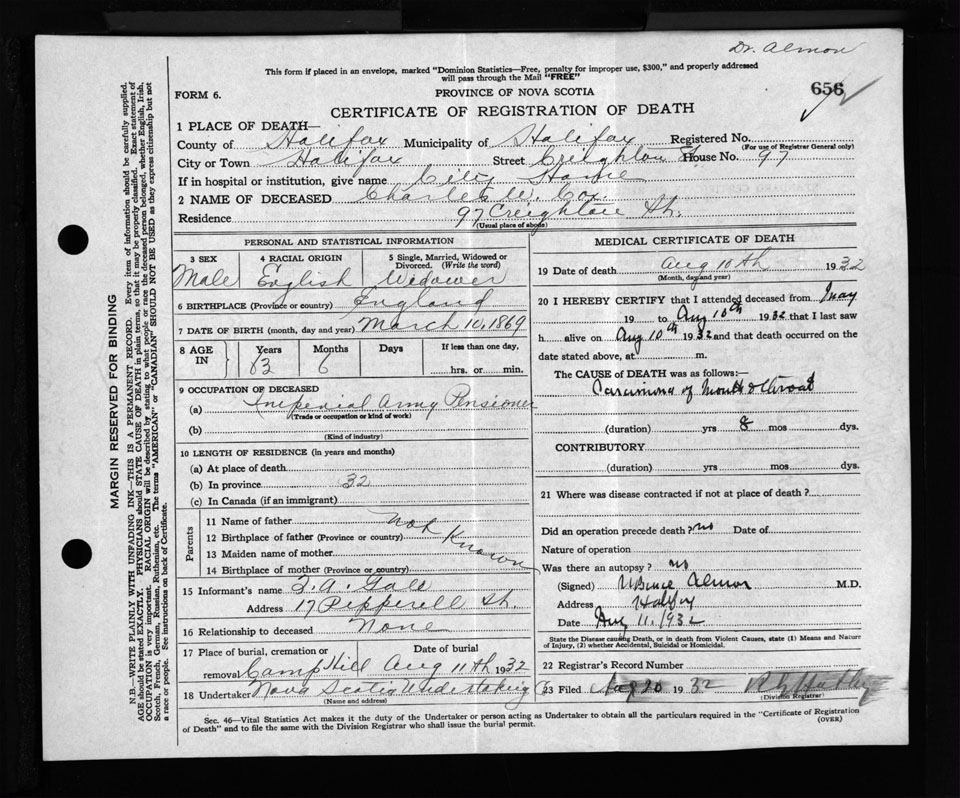 Dr. Almon
This form if placed in an envelope, marked "Dominion Statistics—Free, penalty for improper use, $300," and properly addressed
will pass through the Mail "FREE"
FORM 6.
PROVINCE OF NOVA SCOTIA
656
CERTIFICATE OF REGISTRATION OF DEATH
1 PLACE OF DEATH—
County of Halifax Municipality of Halifax Registered No.
(For use of Registrar General only)
City or Town Halifax Street Creighton St House No. 97
If in hospital or institution, give name City Home
2 NAME OF DECEASED Charles W. Cox
Residence 97 Creighton St.
(Usual place of abode)
PERSONAL AND STATISTICAL INFORMATION
3 SEX 4 RACIAL ORIGIN 5 Single, Married, Widowed or
Divorced. (Write the word)
Male English Widower
6 BIRTHPLACE (Province or country) England
7 DATE OF BIRTH (month, day and year) March 10, 1869
8 AGE IN Years Months Days If less than one day,
63 6 hrs. or min.
9 OCCUPATION OF DECEASED
(a) Imperial Army Pensioner
(Trade or occupation or kind of work)
(b)
(Kind of industry)
10 LENGTH OF RESIDENCE (in years and months)
(a) At place of death
(b) In province 32
(c) In Canada (if an immigrant)
Parents
11 Name of father Not
12 Birthplace of father (Province or country) Known
13 Maiden name of mother
14 Birthplace of mother (Province or country)
15 Informant's name F. A. Gale
Address 17 Pepperell St.
16 Relationship to deceased None
17 Place of burial, cremation or Date of burial
removal Camp Hill Aug 11th 1932
18 Undertaker Nova Scotia Undertaking Co
(Name and address)
MEDICAL CERTIFICATE OF DEATH
19 Date of death Aug 10th 1932
(Month, day and year)
20 I HEREBY CERTIFY that I attended deceased from May
19 to Aug 10th 1932 that I last saw
h alive on Aug 10th 1932 and that death occurred on the
date stated above, at m.
The CAUSE of DEATH was as follows:—
Carcinoma of Mouth & throat
(duration) yrs 8 mos dys.
CONTRIBUTORY
(duration) yrs mos dys.
21 Where was disease contracted if not at place of death?
Did an operation precede death? no Date of
Nature of operation
Was there an autopsy? no
(Signed) W Bruce Almon M.D.
Address Halifax
Date Aug 11, 1932
State the Disease causing Death, or in death from Violent Causes, state (1) Means and Nature
of Injury, (2) whether Accidental, Suicidal or Homicidal.
22 Registrar's Record Number
23 Filed Aug 20 1932
(Division Registrar)
Sec. 46—Vital Statistics Act makes it the duty of the Undertaker or person acting as Undertaker to obtain all the particulars required in the "Certificate of Registration
of Death" and to file the same with the Division Registrar who shall issue the burial permit.
(OVER)
MARGIN RESERVED FOR BINDING
N.B.—WRITE PLAINLY WITH UNFADING INK—THIS IS A PERMANENT RECORD. Every item of information should be carefully supplied.
AGE should be stated EXACTLY. PHYSICIANS should STATE CAUSE OF DEATH in plain terms, so that it may be properly classified. Exact statement of
OCCUPATION is very important. RACIAL ORIGIN will be described by stating to what people or race the deceased person belonged, whether English, Irish,
Scotch, French, German, Russian, Ruthenian, etc. The terms "AMERICAN" or "CANADIAN" SHOULD NOT BE USED as they express citizenship but not
a race or people. See instructions on back of Certificate.